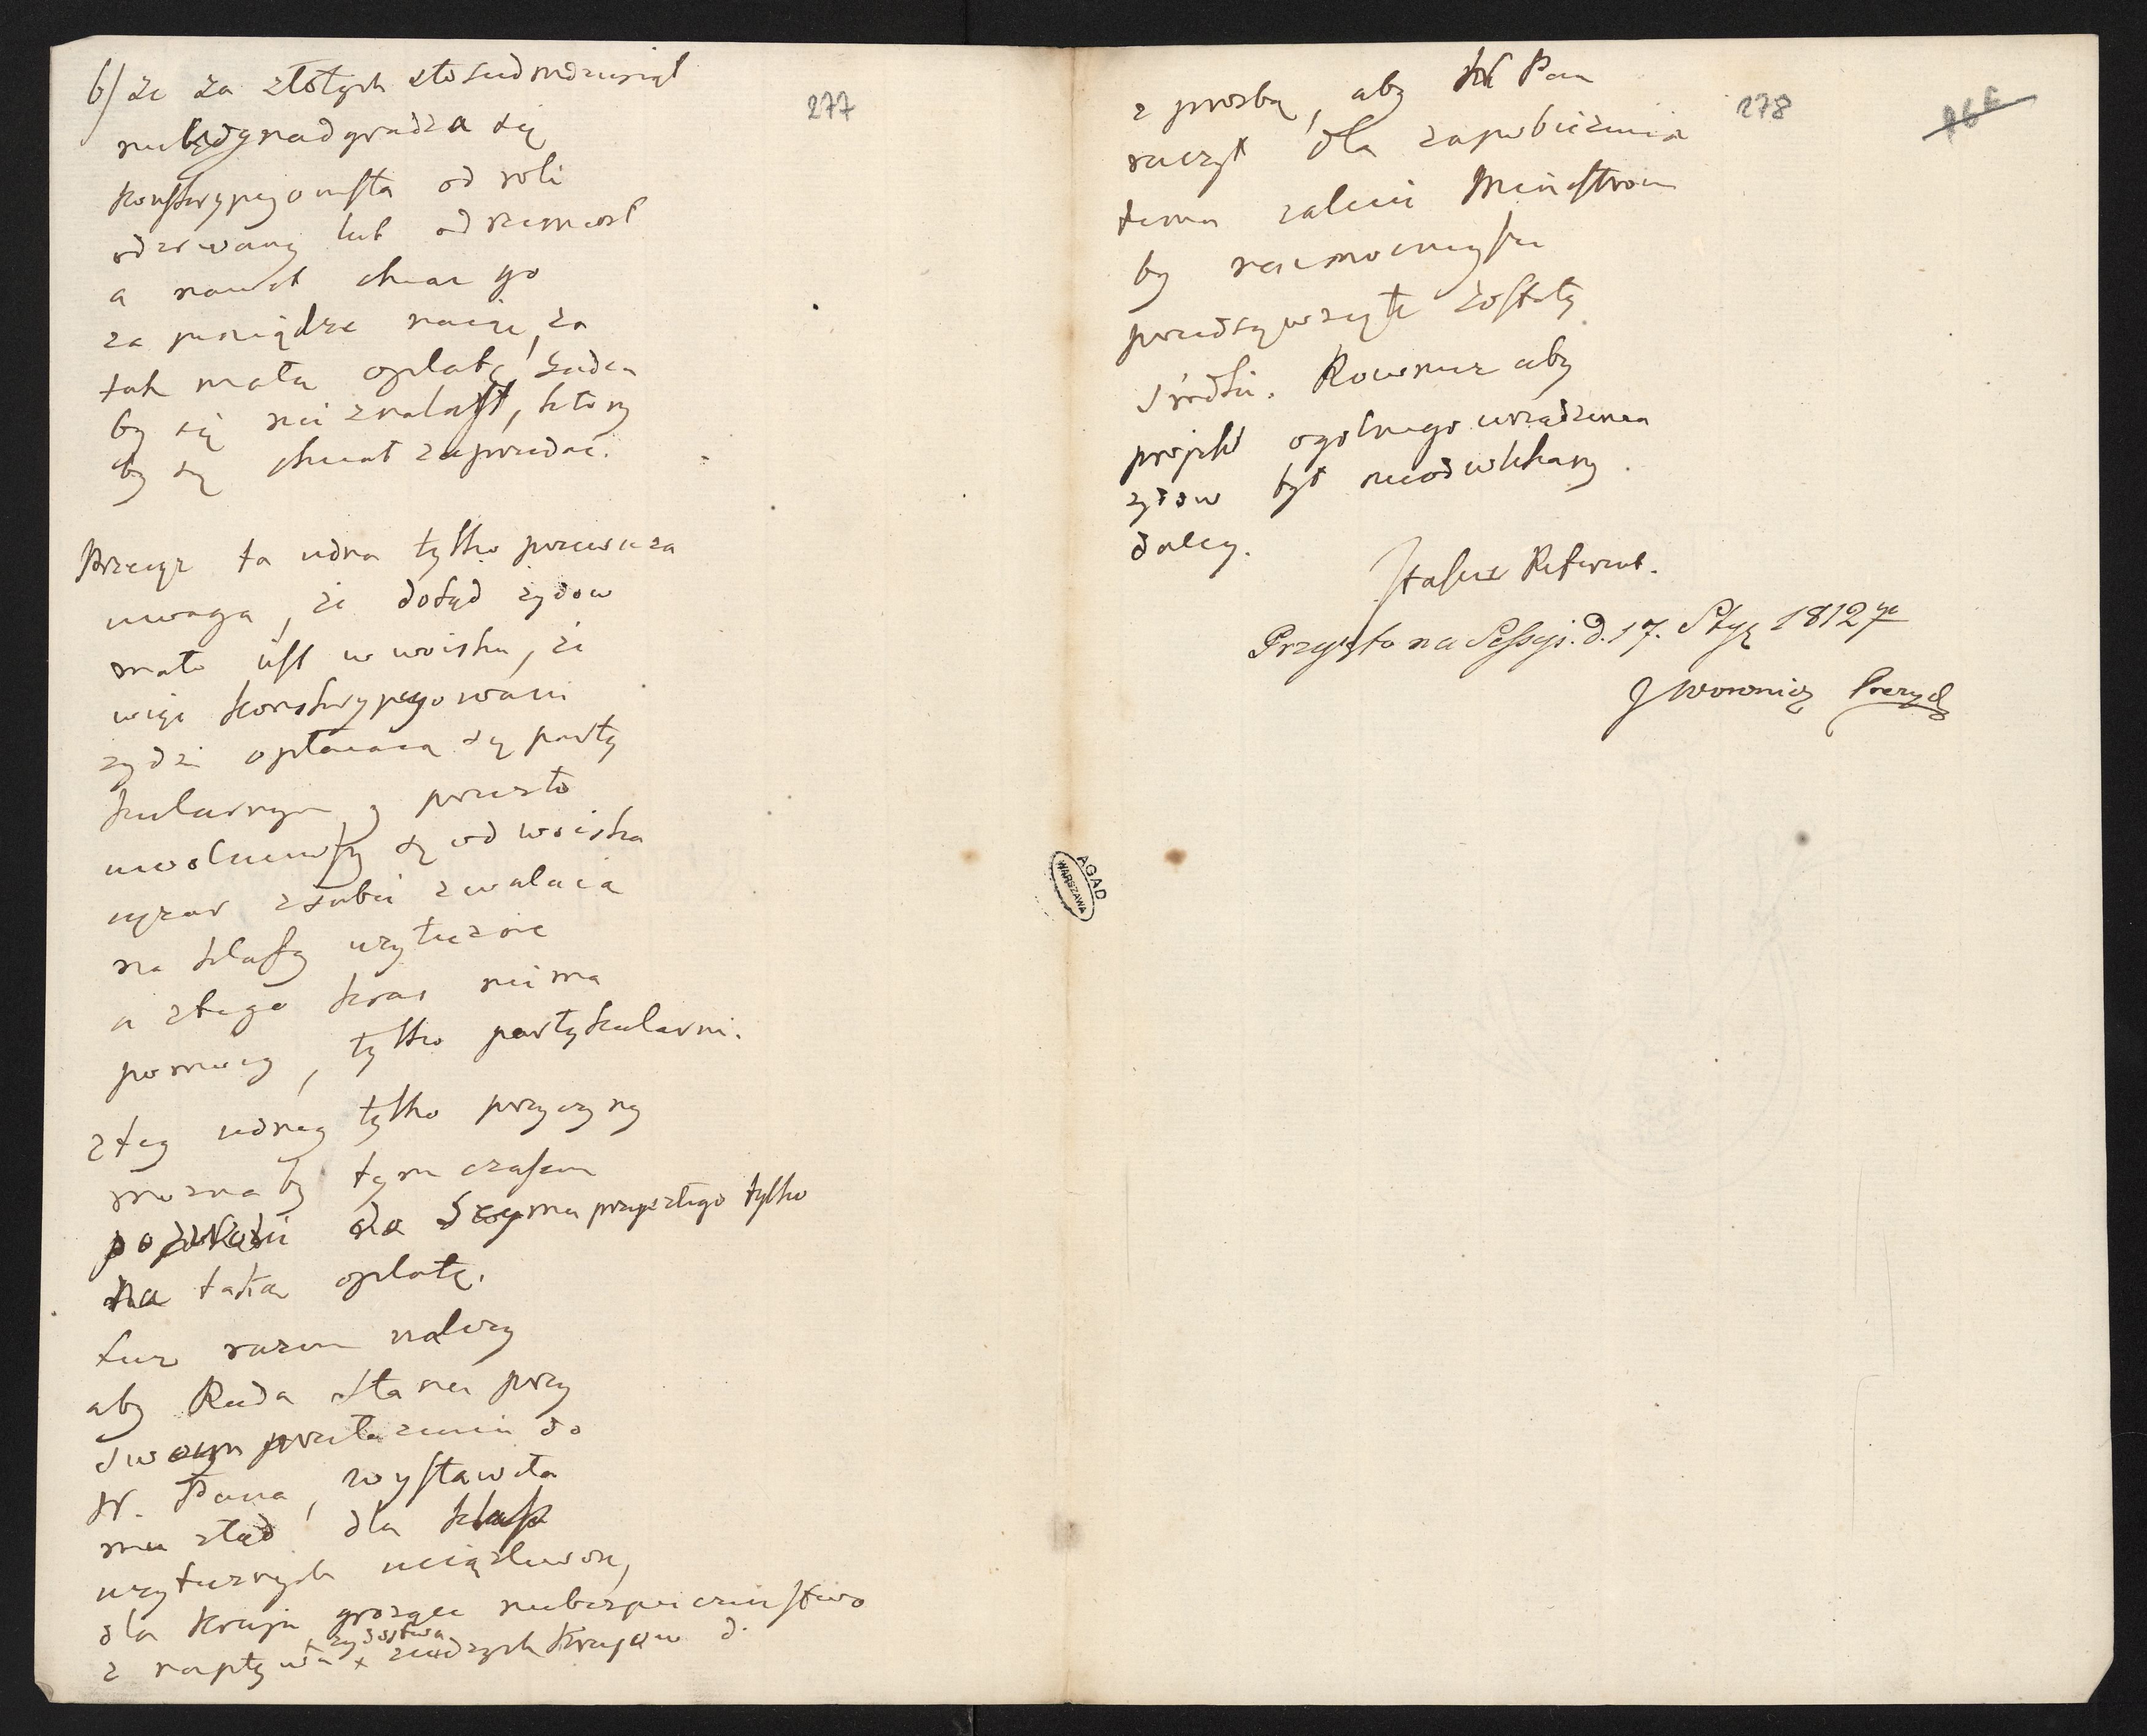 277
b) że za złotych sto siedmdziesiąt
nie będzie nadgradza się
konskrypcyonista od roli
oderwany lub od rzemiosł
a nawet chcąc go
za pieniądze naiąc, za
tak małą opłatę żaden
by się nie znalasł, ktory
by się chciał zaprzedać.
Przecież ta iedna tylko przeważa
uwaga, że dotąd zydow
mało iest w woisku, że
więc konskrypcyowani
zydzi opłacaią się party
kularnym, przez to
uwolniwszy się od woiska
ciężar z siebie zwalaią
na klassy użyteczne
a z tego kray nie ma
pomocy, tylko partykularni.
z tey iedney tylko przyczyny
można by tym czasem
do Seymu przyszłego tylko
na taką opłatę.
Lecz razem należy
aby Rada Stanu przy
swoim przełożeniu do
N. Pana, wystawiła
mu ztąd dla klass
użytecznych uciążliwość,
dla kraju grożące niebezpieczeństwo
z napływu zydostwa z cudzych kraiow
278
z prosbą, aby N Pan
raczył dla zapobieżenia
temu zalecić Ministrom
by naimocnieysze
przedsięwzięte zostały
srodki. Rownież aby
projekt ogolnego urządzenia
zydow był nieodwlekany
daley.
Staszic Referent.
Przyięto na Sessyi. d. 17. Stycz 1812 r
J Woronicz
AGAD
WARSZAWA